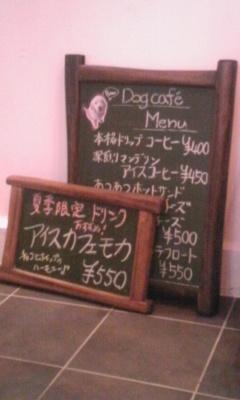 Dog café
Menu
本格ドリップコーヒー ¥400
深煎りマンデリン
アイスコーヒー ¥450
あつあつホットサンド
ーズ
ーズ
¥500
フロート
¥550
夏季限定 ドリンク
おすすめ!
アイスカフェモカ
チョコとホイップの
ハーモニー♪
¥550